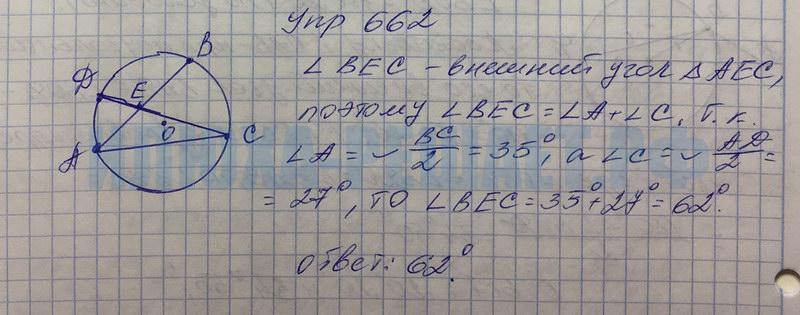 Упр 662
∠ BEC - внешний угол △ AEC,
поэтому ∠ BEC = ∠A + ∠C. Т. к.
∠A = ◡ BC/2 = 35°, а ∠C = ◡ AД/2 =
= 27°, то ∠ BEC = 35° + 27° = 62°.
ответ: 62°.
B
Д
E
O
C
A